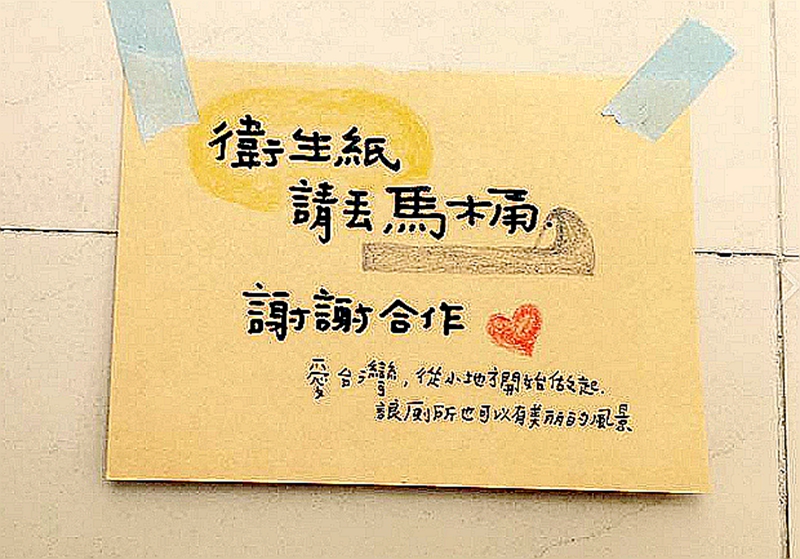 衛生紙
請丟馬桶.
謝謝合作
愛台灣,從小地方開始做起.
讓厠所也可以有美丽的風景